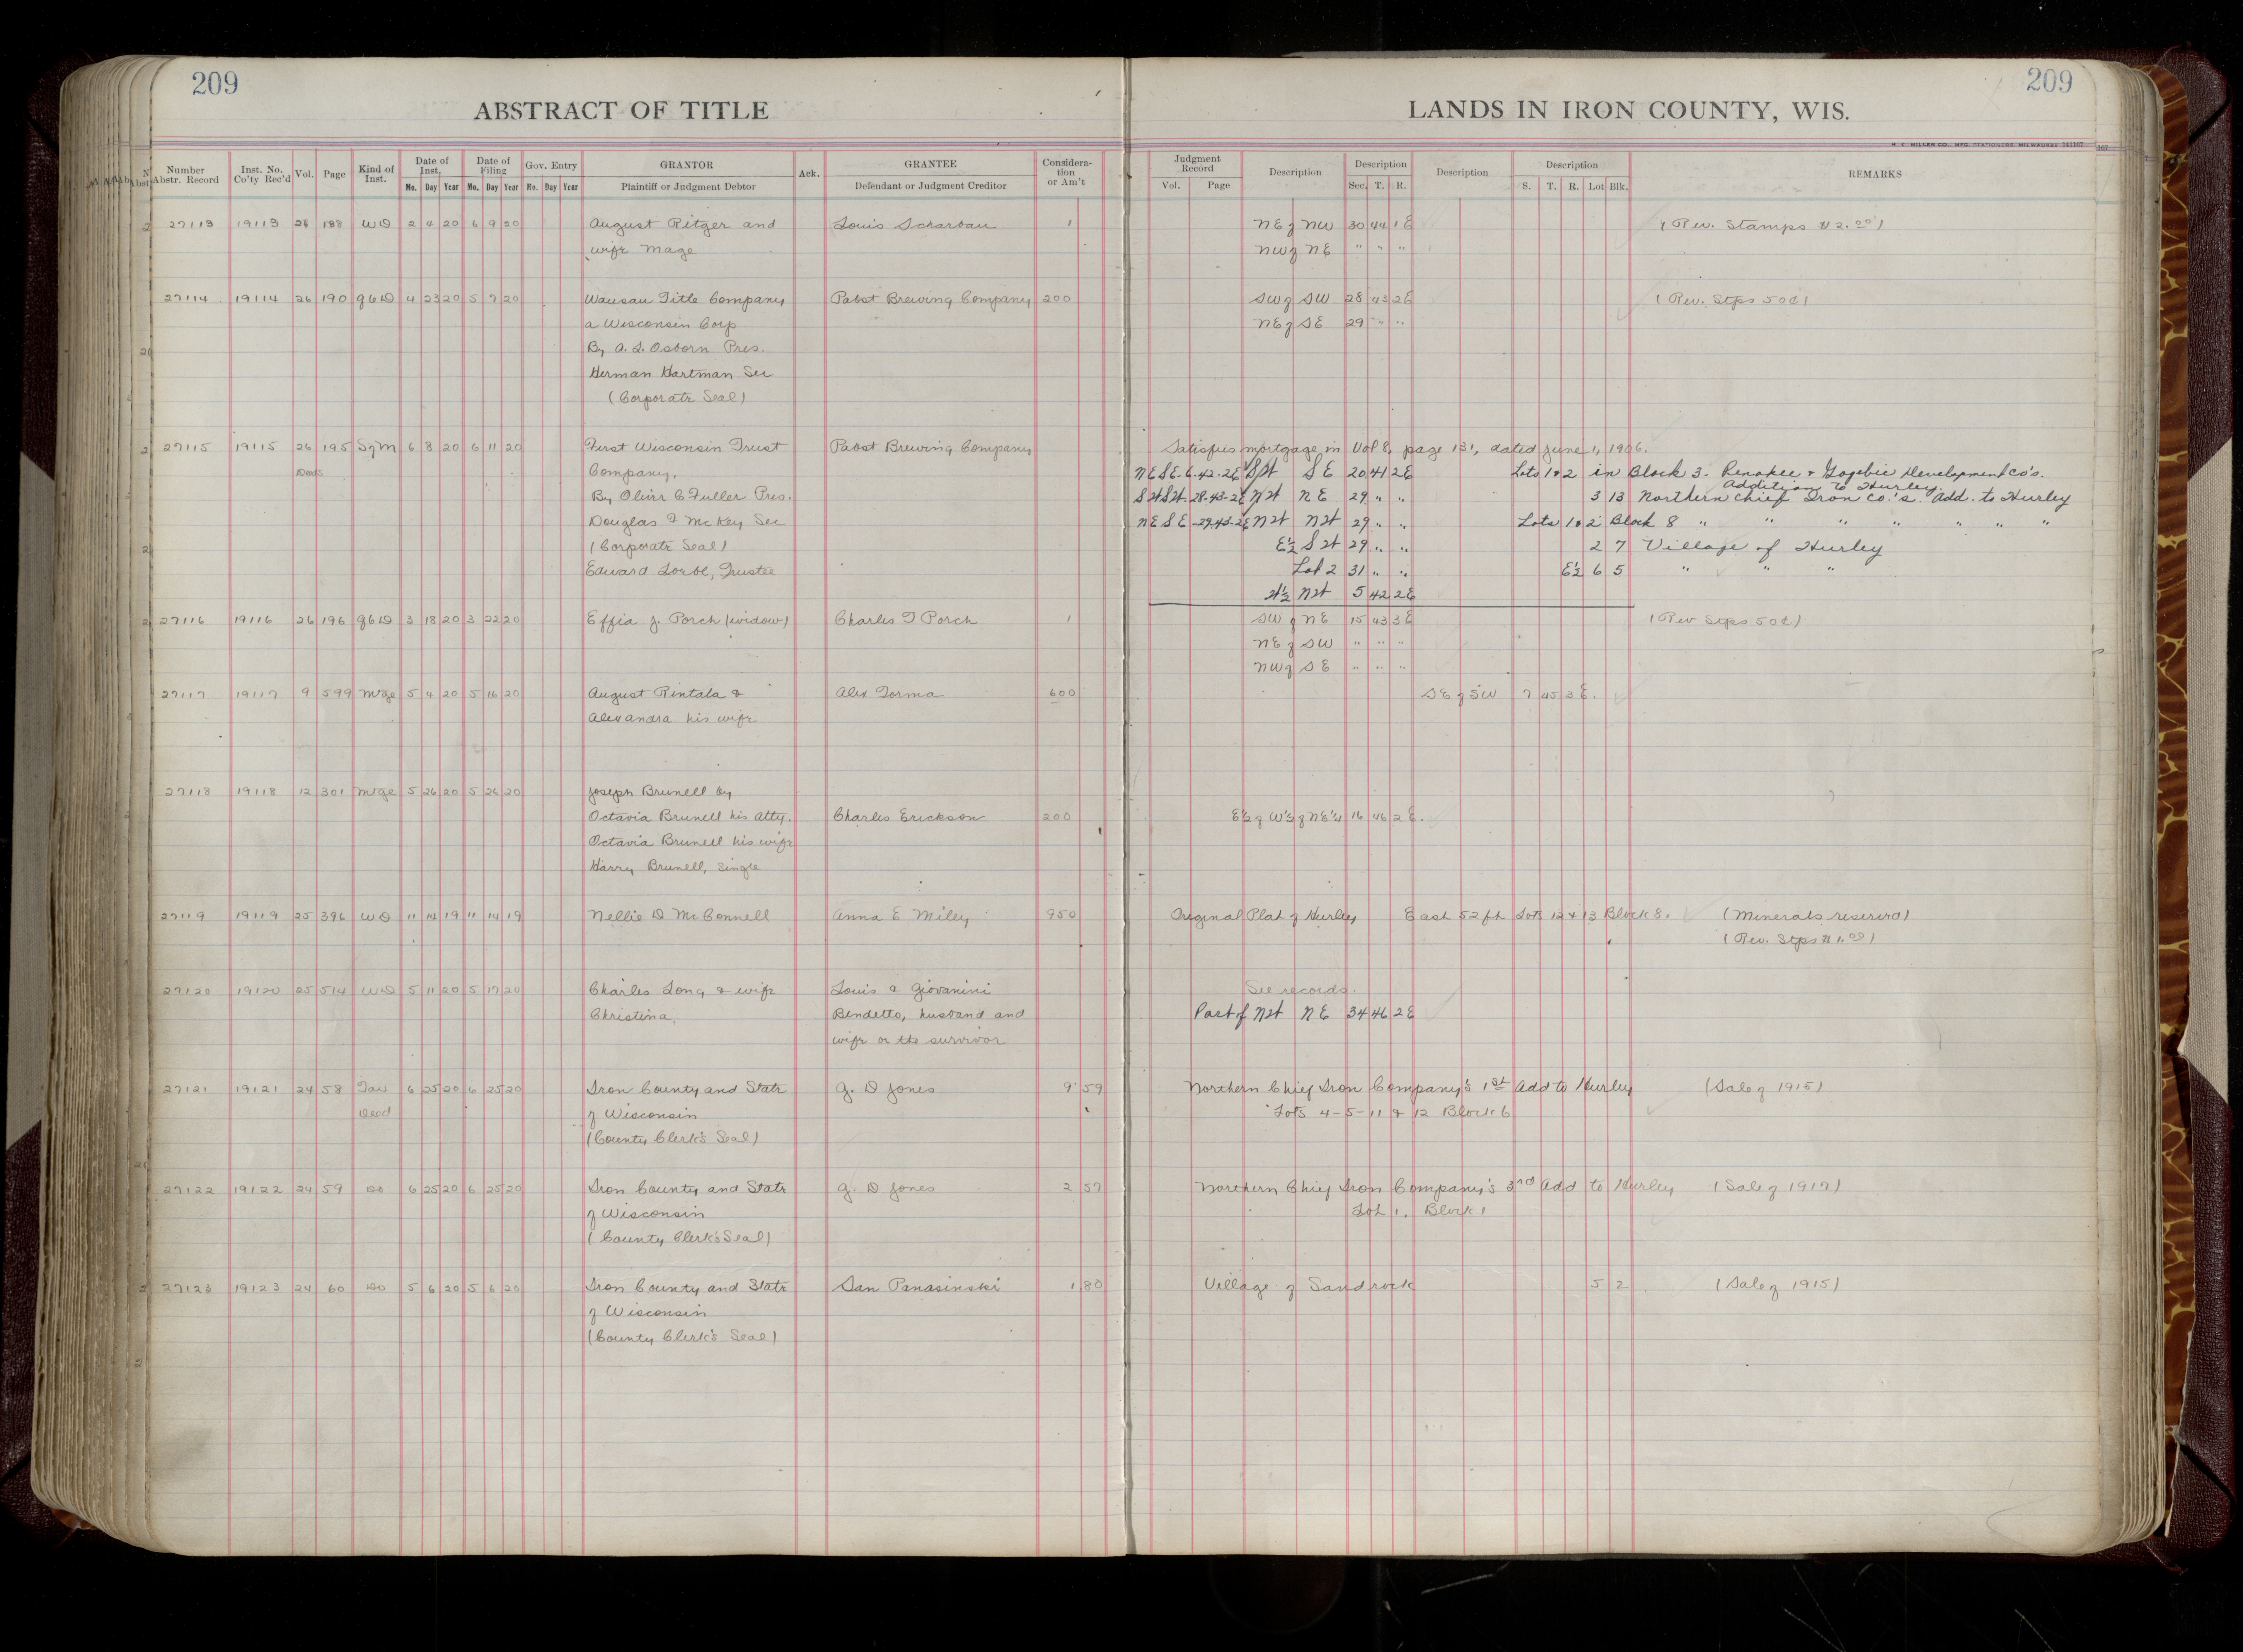 209
209
ABSTRACT OF TITLE
LANDS IN IRON COUNTY, WIS.
H. C. MILLER CO., MFG. STATIONERS, MILWAUKEE 161167
Number Abstr. Record | Inst. No. Co'ty Rec'd | Vol. | Page | Kind of Inst. | Date of Inst. Mo. Day Year | Date of Filing Mo. Day Year | Gov. Entry Mo. Day Year | GRANTOR Plaintiff or Judgment Debtor | Ack. | GRANTEE Defendant or Judgment Creditor | Consideration or Am't
Judgment Record Vol. Page | Description | Description Sec. T. R. | Description | Description S. T. R. Lot Blk. | REMARKS
27113 19113 26 188 WD 2 4 20 6 9 20 August Ritger and Louis Scharbau 1 NE of NW 30 44 1E (Rev. Stamps $2.00)
wife Mage NW of NE " " "
27114 19114 26 190 QCD 4 23 20 5 7 20 Wausau Title Company Pabst Brewing Company 200 SW of SW 28 43 2E (Rev. Stps 50¢)
a Wisconsin Corp NE of SE 29 " "
By A. L. Osborn Pres.
Herman Hartman Sec
(Corporate Seal)
27115 19115 26 195 SofM 6 8 20 6 11 20 First Wisconsin Trust Pabst Brewing Company Satisfies mortgage in Vol 8, page 131, dated June 1, 1906.
Deeds Company. NE SE-6-42-2E SW SE 20 41 2E Lots 1 & 2 in Block 3. Penokee & Gogebic Development Co's.
Addition to Hurley.
By Oliver C Fuller Pres. SW SW-28-43-2E NW NE 29 " " 3 13 Northern Chief Iron Co.'s. Add. to Hurley
Douglas F McKey Sec NE SE-29-43-2E NW NW 29 " " Lots 1 & 2 Block 8 " " " " " " "
(Corporate Seal) E½ SW 29 " " 2 7 Village of Hurley
Edward Loebl, Trustee Lot 2 31 " " E½ 6 5 " " "
W½ NW 5 42 2E
27116 19116 26 196 QCD 3 18 20 3 22 20 Effia J. Porch (widow) Charles T Porch 1 SW of NE 15 43 3E (Rev Stps 50¢)
NE of SW " " "
NW of SE " " "
27117 19117 9 599 Mtge 5 4 20 5 16 20 August Rintala & Alex Torma 600 SE of SW 7 45 3 E.
Alexandra his wife
27118 19118 12 301 Mtge 5 26 20 5 26 20 Joseph Brunell by
Octavia Brunell his atty. Charles Erickson 200 E½ of W½ of NE¼ 16 46 2 E.
Octavia Brunell his wife
Harry Brunell, single
27119 19119 25 396 WD 11 14 19 11 14 19 Nellie D McConnell Anna E Miley 950 Original Plat of Hurley East 52 ft Lots 12 & 13 Block 8. (Minerals reserved)
(Rev. Stps $1.00)
27120 19120 25 514 WD 5 11 20 5 17 20 Charles Long & wife Louis & Giovanini See records.
Christina Bendetto, husband and Part of NW NE 34 46 2E
wife or the survivor
27121 19121 24 58 Tax 6 25 20 6 25 20 Iron County and State G. D Jones 9 59 Northern Chief Iron Company's 1st Add to Hurley (Sale of 1915)
Deed of Wisconsin Lots 4-5-11 & 12 Block 6
(County Clerk's Seal)
27122 19122 24 59 Do 6 25 20 6 25 20 Iron County and State G. D Jones 2 57 Northern Chief Iron Company's 3rd Add to Hurley (Sale of 1917)
of Wisconsin Lot 1. Block 1
(County Clerk's Seal)
27123 19123 24 60 Do 5 6 20 5 6 20 Iron County and State San Panasinski 1.80 Village of Sandrock 5 2 (Sale of 1915)
of Wisconsin
(County Clerk's Seal)